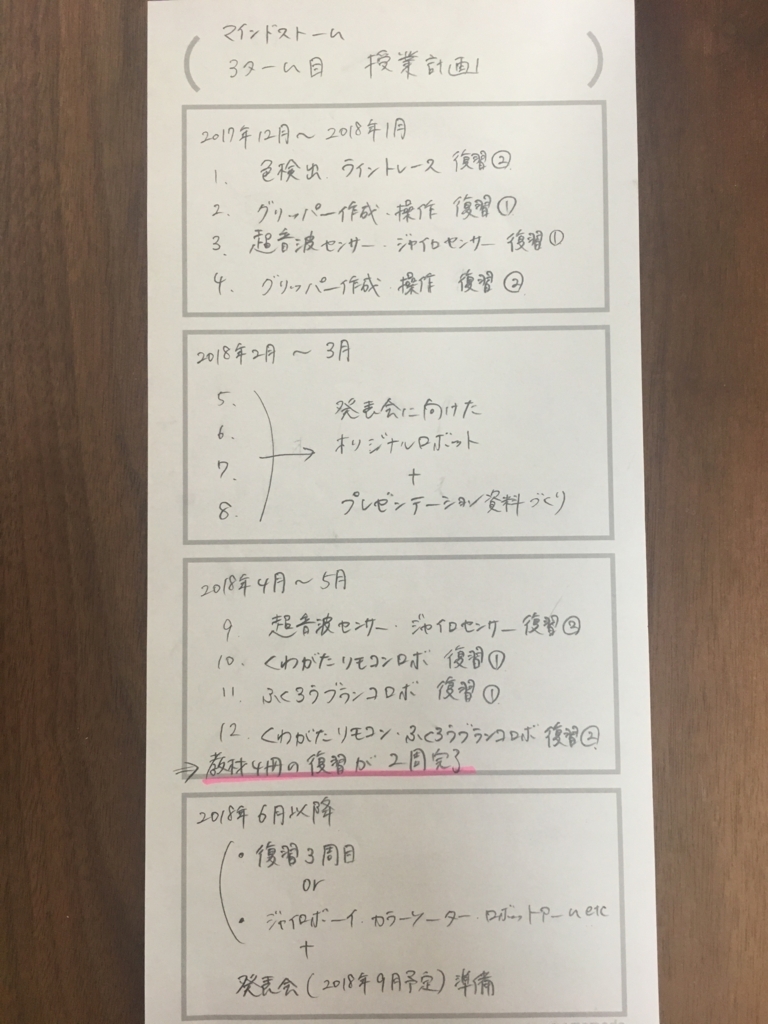 マインドストーム
3ターム目 授業計画
2017年12月〜2018年1月
1. 色検出 ライントレース 復習②
2. グリッパー作成・操作 復習①
3. 超音波センサー・ジャイロセンサー 復習①
4. グリッパー作成・操作 復習②
2018年2月 〜 3月
5.
6.
7.
8.
→
発表会に向けた
オリジナルロボット
+
プレゼンテーション資料づくり
2018年4月〜5月
9 超音波センサー・ジャイロセンサー 復習②
10. くわがたリモコンロボ 復習①
11. ふくろうブランコロボ 復習①
12. くわがたリモコン・ふくろうブランコロボ 復習②
⇒ 教材4冊の復習が2周完了
2018年6月以降
・復習3周目
or
・ジャイロボーイ・カラーソーター・ロボットアームetc
+
発表会(2018年9月予定)準備